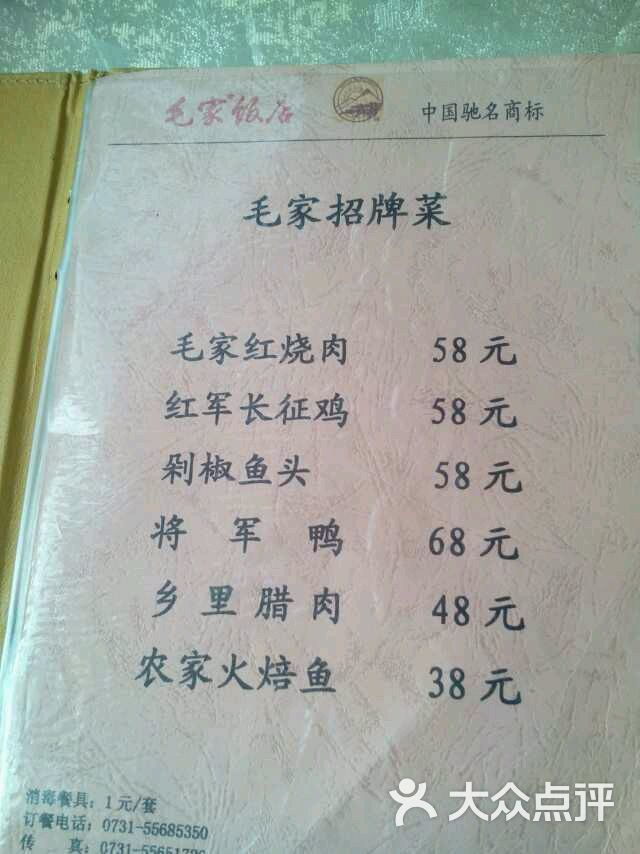 毛家饭店 中国驰名商标
毛家招牌菜
毛家红烧肉 58元
红军长征鸡 58元
剁椒鱼头 58元
将军鸭 68元
乡里腊肉 48元
农家火焙鱼 38元
消毒餐具：1元/套
订餐电话：0731-55685350
传 真：0731-55651726
大众点评